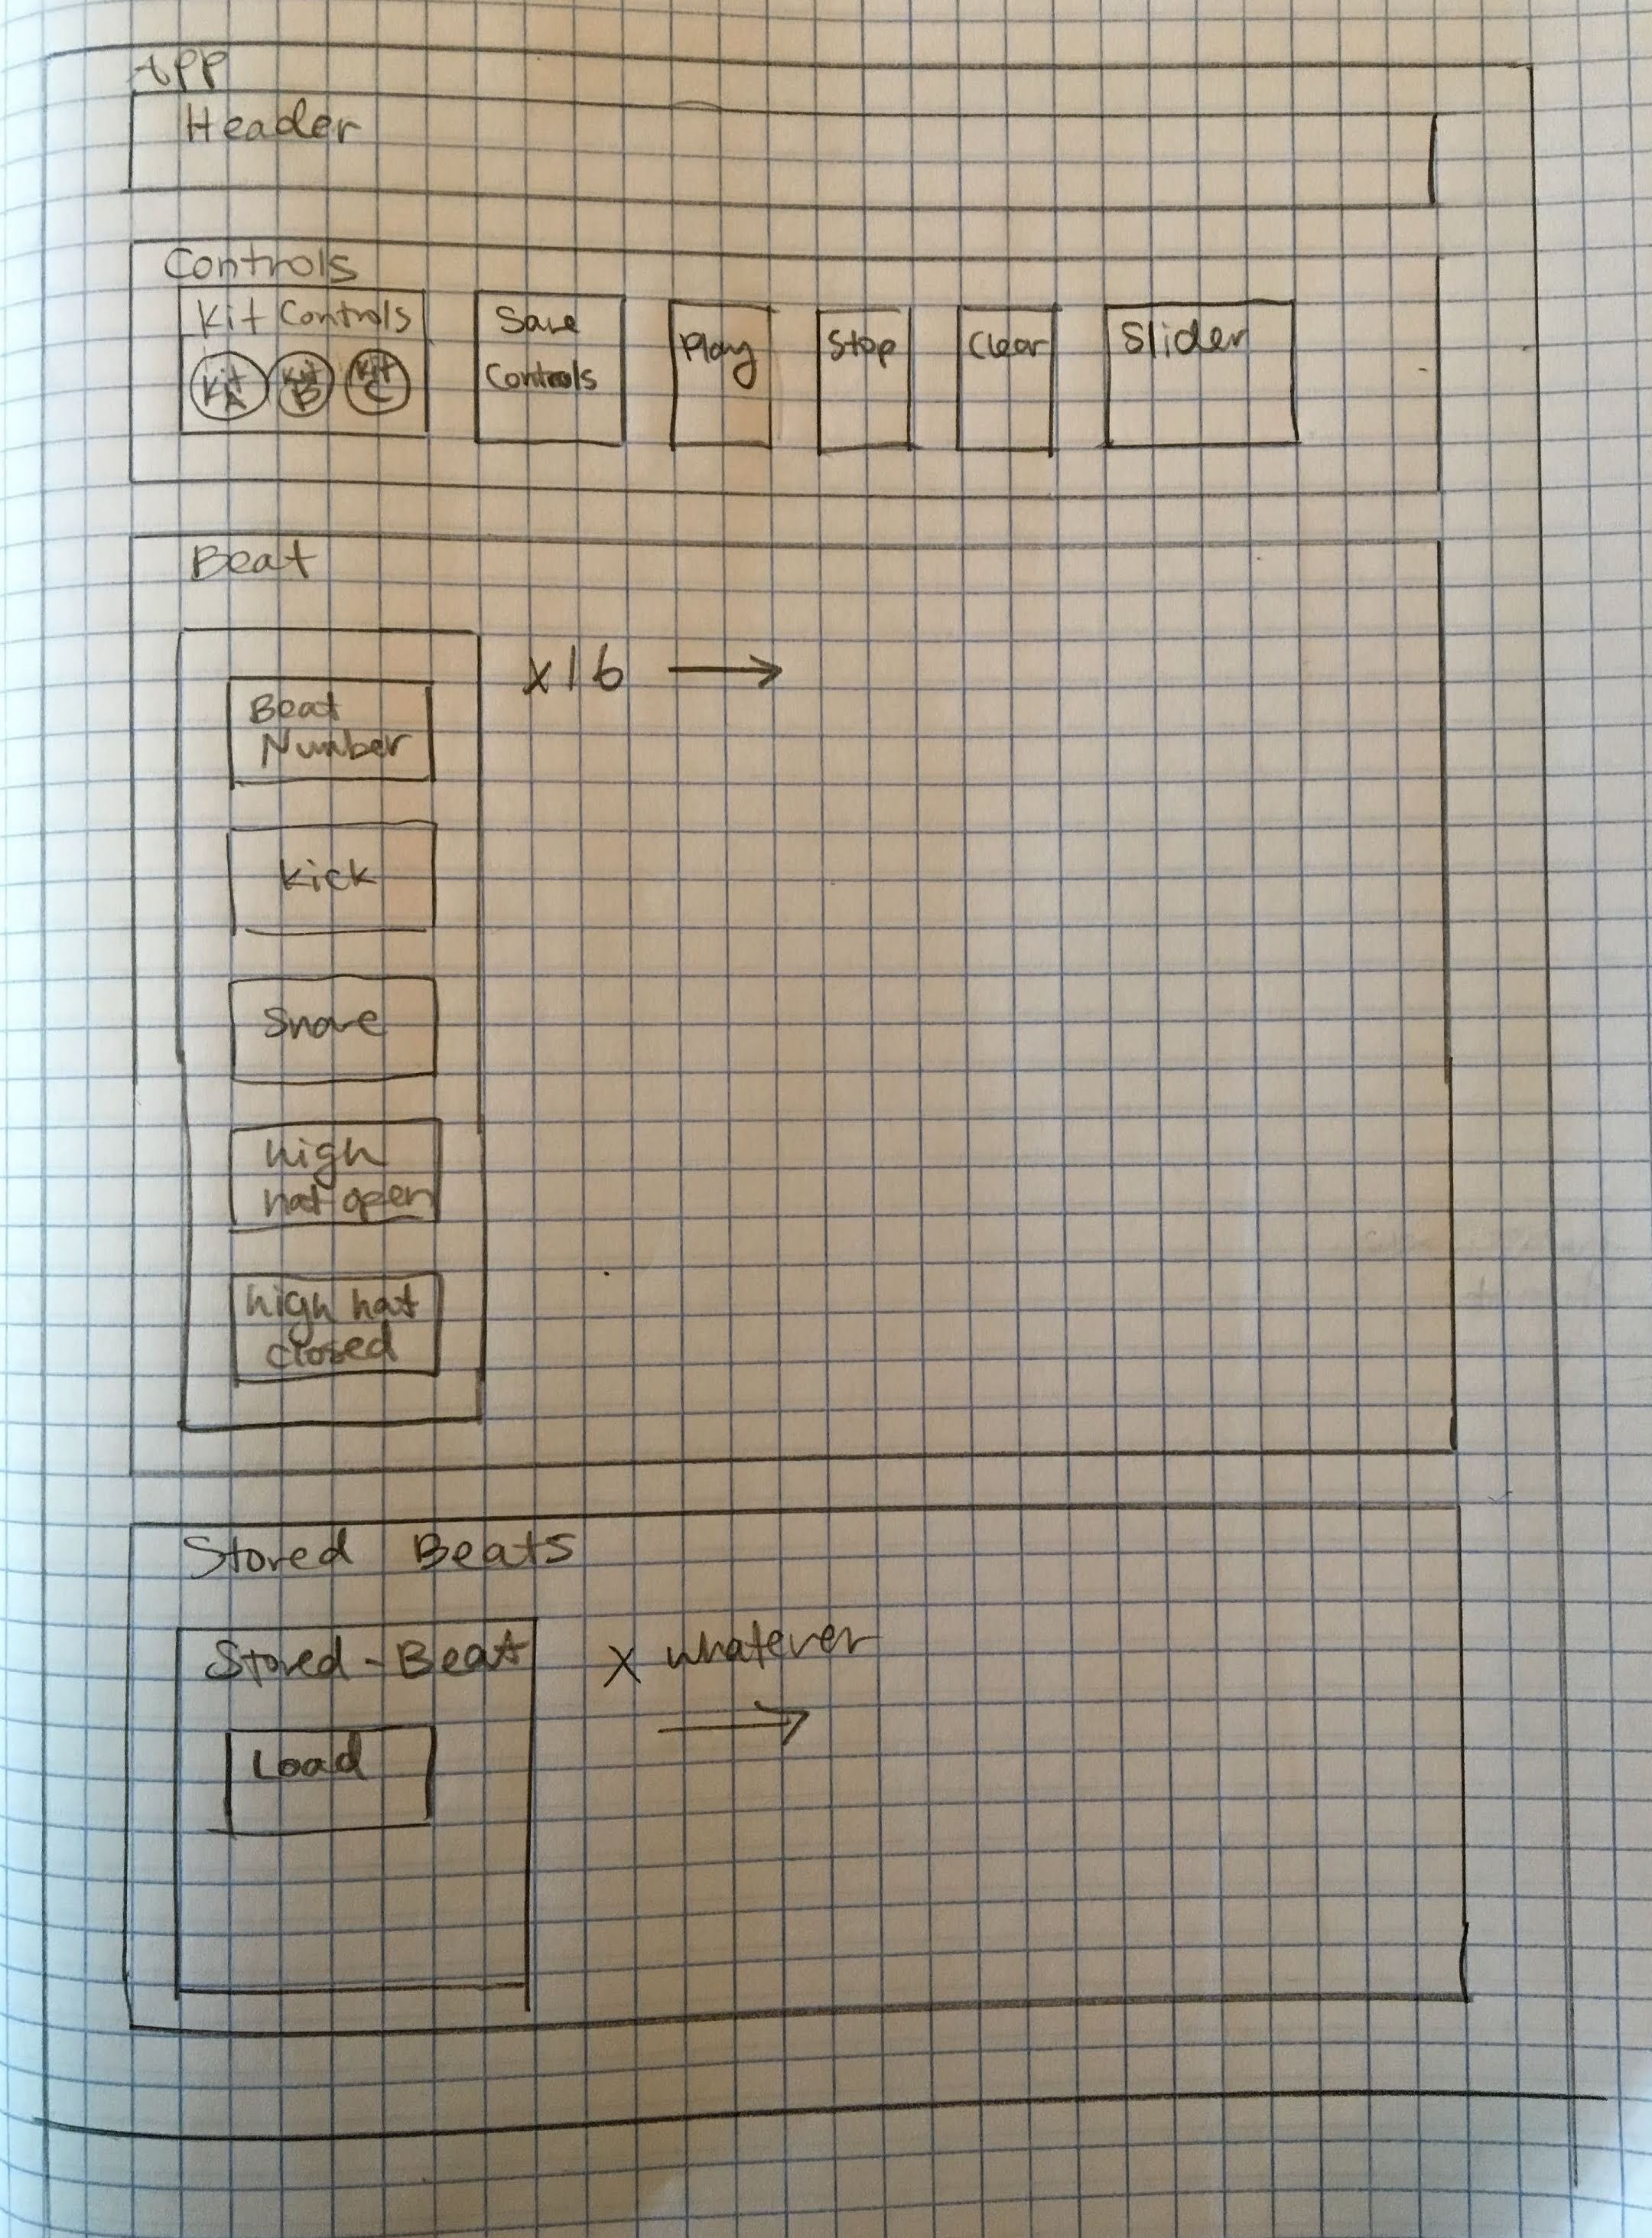 App
Header
Controls
Kit Controls
Kit
A
Kit
B
Kit
C
Save
Controls
Play
Stop
Clear
Slider
Beat
x16
Beat
Number
Kick
Snare
high
hat open
high hat
closed
Stored Beats
Stored-Beat
x whatever
Load